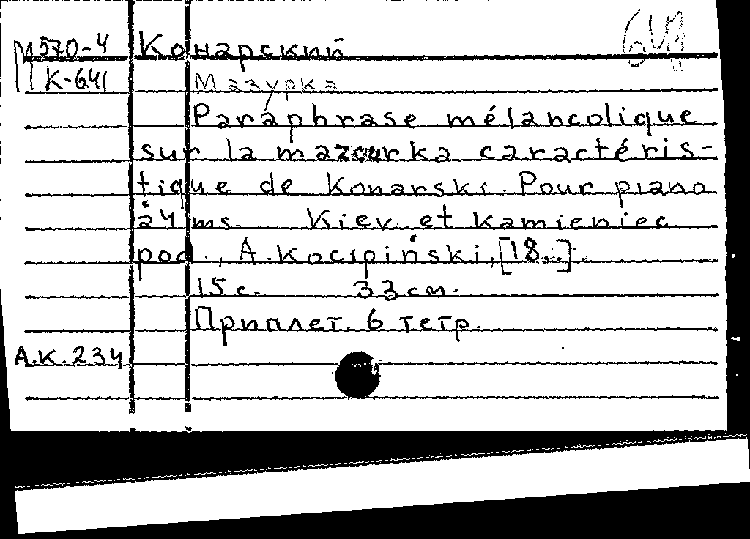 М 570-4 Конарский 641
К-641 Мазурка
Paraphrase mélancolique
sur la mazourka caractéris-
tique de Konarski. Pour piano
à 4 ms. Kiev et Kamieniec
pod., A. Kocipiński, [18..].
15 с. 33 см.
Приплет. 6 тетр.
А.К.234